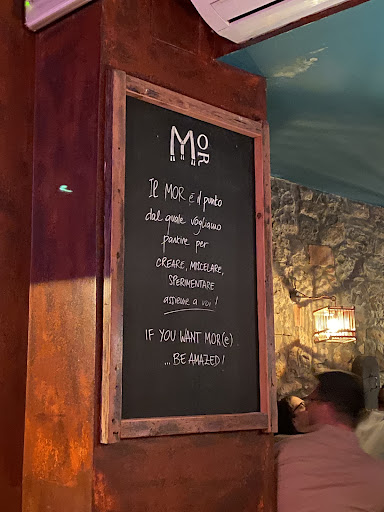 MOR
Il MOR è il punto
dal quale vogliamo
partire per
CREARE, MISCELARE,
SPERIMENTARE
assieme a voi!
IF YOU WANT MOR(e)
...BE AMAZED!